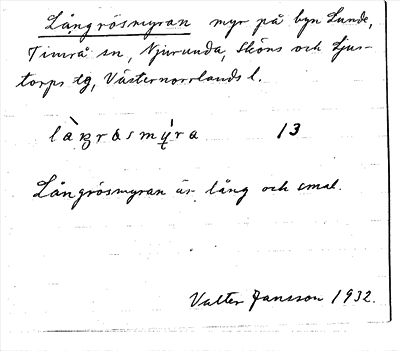 Långrösmyran myr på byn Lunde,
Timrå sn, Njurunda, Sköns och Ljus-
torps tg, Västernorrlands l.
làŋrøsmý̨ra 13
Långrösmyran är lång och smal.
Valter Jansson 1932.